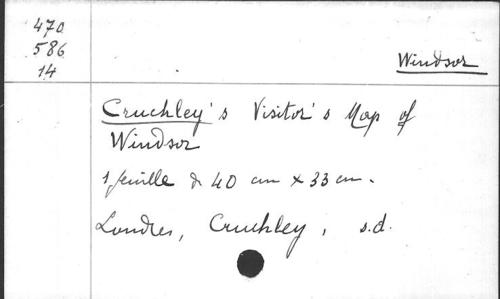 470
586
14
Windsor
Cruchley's Visitor's Map of
Windsor
1 feuille de 40 cm x 33 cm.
Londres, Cruchley, s.d.